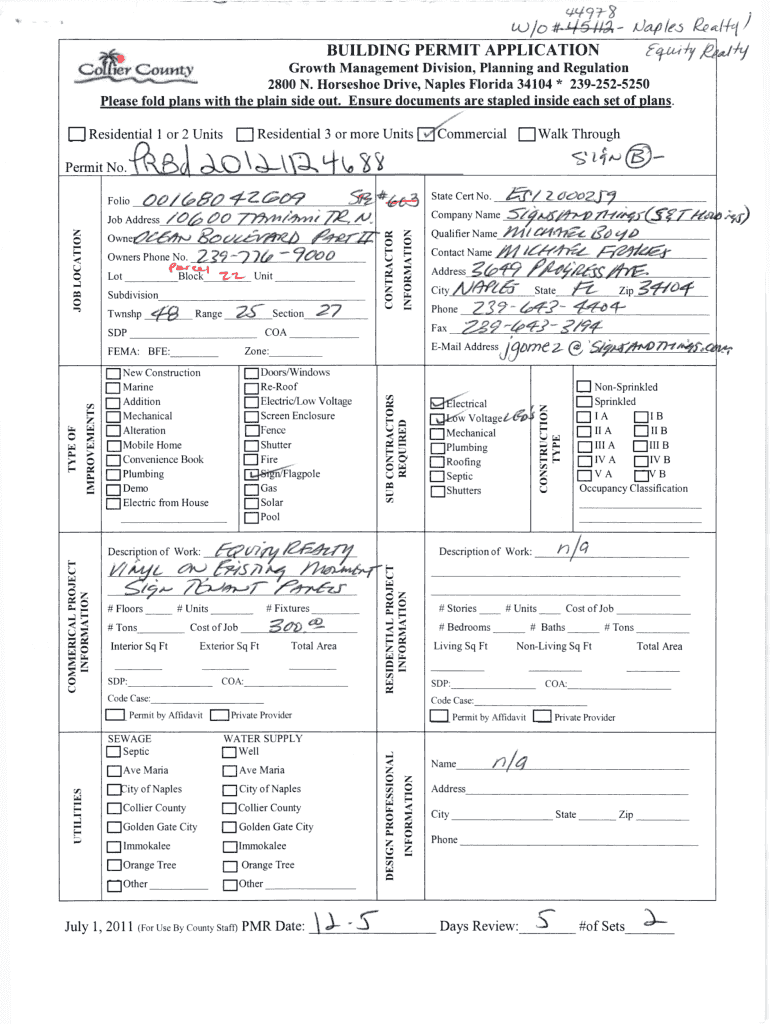 44978
W/O # 45112 - Naples Realty /
Equity Realty
Collier County
BUILDING PERMIT APPLICATION
Growth Management Division, Planning and Regulation
2800 N. Horseshoe Drive, Naples Florida 34104 * 239-252-5250
Please fold plans with the plain side out. Ensure documents are stapled inside each set of plans.
Residential 1 or 2 Units Residential 3 or more Units Commercial Walk Through
Permit No. PRBd 20121124688 Sign B -
JOB LOCATION
Folio 00168042609 # 663
Job Address 10600 TAMIAMI TR. N.
Owner OCEAN BOULEVARD PART II
Owners Phone No. 239-776-9000
Parcel
Lot Block 22 Unit
Subdivision
Twnshp 48 Range 25 Section 27
SDP COA
FEMA: BFE: Zone:
CONTRACTOR INFORMATION
State Cert No. ES12000259
Company Name SIGNS AND THINGS (S&T Holdings)
Qualifier Name MICHAEL BOYD
Contact Name MICHAEL FRAKES
Address 3649 PROGRESS AVE.
City NAPLES State FL Zip 34104
Phone 239-643-4404
Fax 239-643-3194
E-Mail Address jgomez@SignsANDThings.com
TYPE OF IMPROVEMENTS
New Construction Doors/Windows
Marine Re-Roof
Addition Electric/Low Voltage
Mechanical Screen Enclosure
Alteration Fence
Mobile Home Shutter
Convenience Book Fire
Plumbing Sign/Flagpole
Demo Gas
Electric from House Solar
Pool
SUB CONTRACTORS REQUIRED
Electrical
Low Voltage LED's
Mechanical
Plumbing
Roofing
Septic
Shutters
CONSTRUCTION TYPE
Non-Sprinkled
Sprinkled
I A I B
II A II B
III A III B
IV A IV B
V A V B
Occupancy Classification
COMMERICAL PROJECT INFORMATION
Description of Work: EQUITY REALTY
VINYL ON EXISTING MONUMENT
SIGN TENANT PANELS
# Floors # Units # Fixtures
# Tons Cost of Job 300.00
Interior Sq Ft Exterior Sq Ft Total Area
SDP: COA:
Code Case:
Permit by Affidavit Private Provider
RESIDENTIAL PROJECT INFORMATION
Description of Work: n/a
# Stories # Units Cost of Job
# Bedrooms # Baths # Tons
Living Sq Ft Non-Living Sq Ft Total Area
SDP: COA:
Code Case:
Permit by Affidavit Private Provider
UTILITIES
SEWAGE WATER SUPPLY
Septic Well
Ave Maria Ave Maria
City of Naples City of Naples
Collier County Collier County
Golden Gate City Golden Gate City
Immokalee Immokalee
Orange Tree Orange Tree
Other Other
DESIGN PROFESSIONAL INFORMATION
Name n/a
Address
City State Zip
Phone
July 1, 2011 (For Use By County Staff) PMR Date: 12-5 Days Review: 5 #of Sets 2